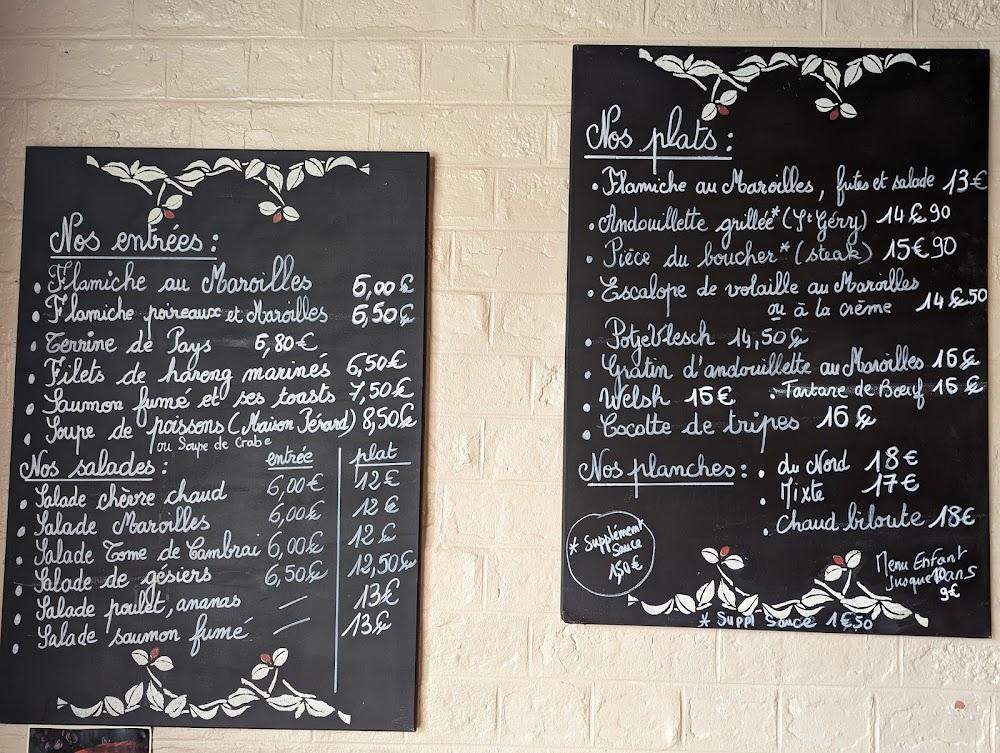 Nos entrées :
• Flamiche au Maroilles 6,00 €
• Flamiche poireaux et Maroilles 6,50 €
• Terrine de Pays 6,80 €
• Filets de hareng marinés 6,50 €
• Saumon fumé et ses toasts 7,50 €
• Soupe de poissons (Maison Pérard) 8,50 €
ou Soupe de Crabe
Nos salades : entrée plat
• Salade chèvre chaud 6,00 € 12 €
• Salade Maroilles 6,00 € 12 €
• Salade Tome de Cambrai 6,00 € 12 €
• Salade de gésiers 6,50 € 12,50 €
• Salade poulet, ananas — 13 €
• Salade saumon fumé — 13 €
Nos plats :
• Flamiche au Maroilles, frites et salade 13 €
• Andouillette grillée* (St Géry) 14 € 90
• Pièce du boucher* (steak) 15 € 90
• Escalope de volaille au Maroilles
ou à la crème 14 € 50
• Potjevlesch 14,50 €
• Gratin d'andouillette au Maroilles 16 €
• Welsh 16 € • Tartare de Bœuf 16 €
• Cocotte de tripes 16 €
Nos planches : • du Nord 18 €
• Mixte 17 €
• Chaud biloute 18 €
* Supplément
Sauce
1,50 €
Menu Enfant
Jusque 10 ans
9 €
* Suppl Sauce 1 € 50